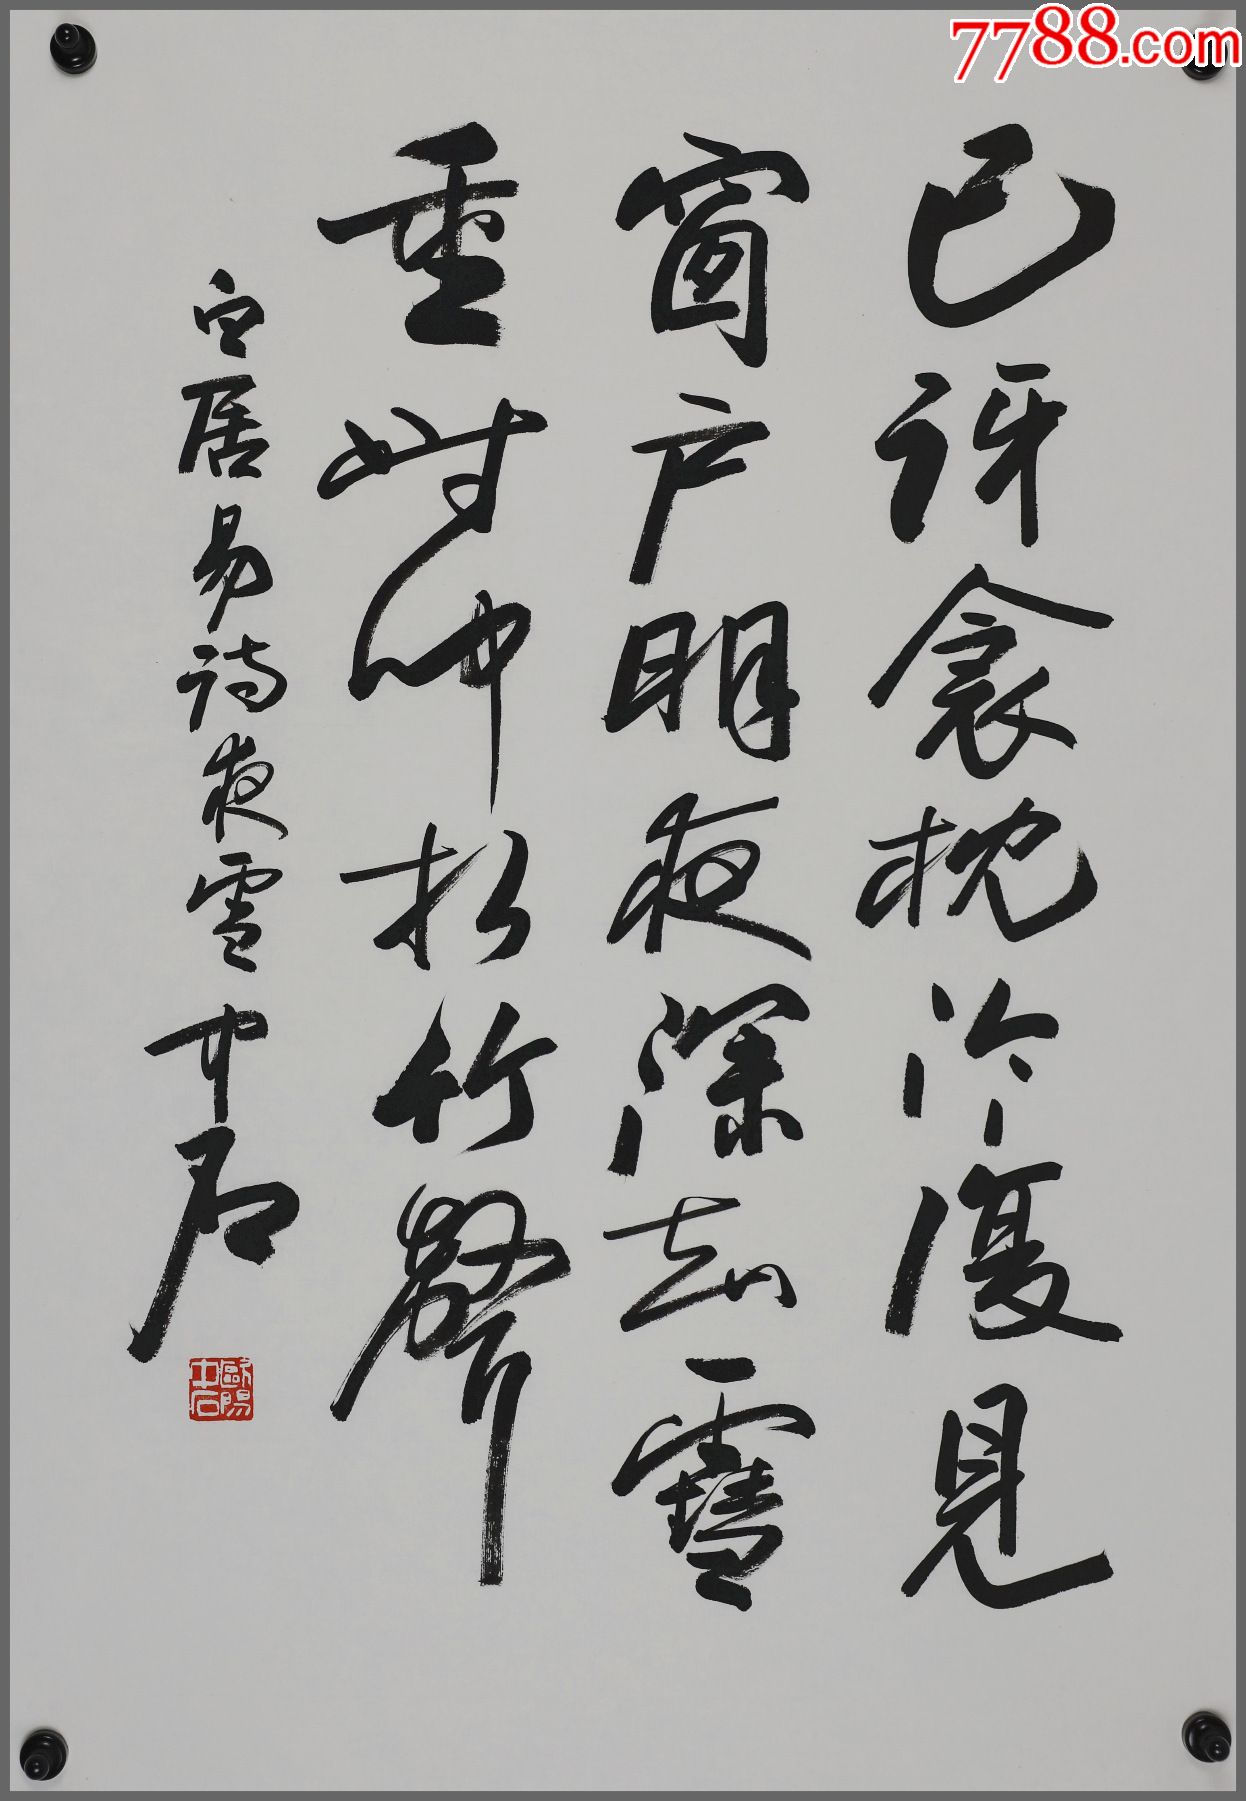 7788.com
已訝衾枕冷復見
窗户明夜深知雪
重時聞折竹聲
白居易詩夜雪 中石
歐陽中石